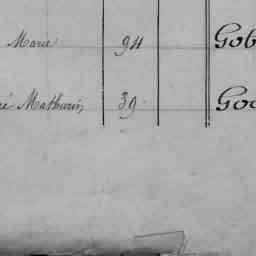 Marie 94 Gob
ré Mathurin, 39 Goo